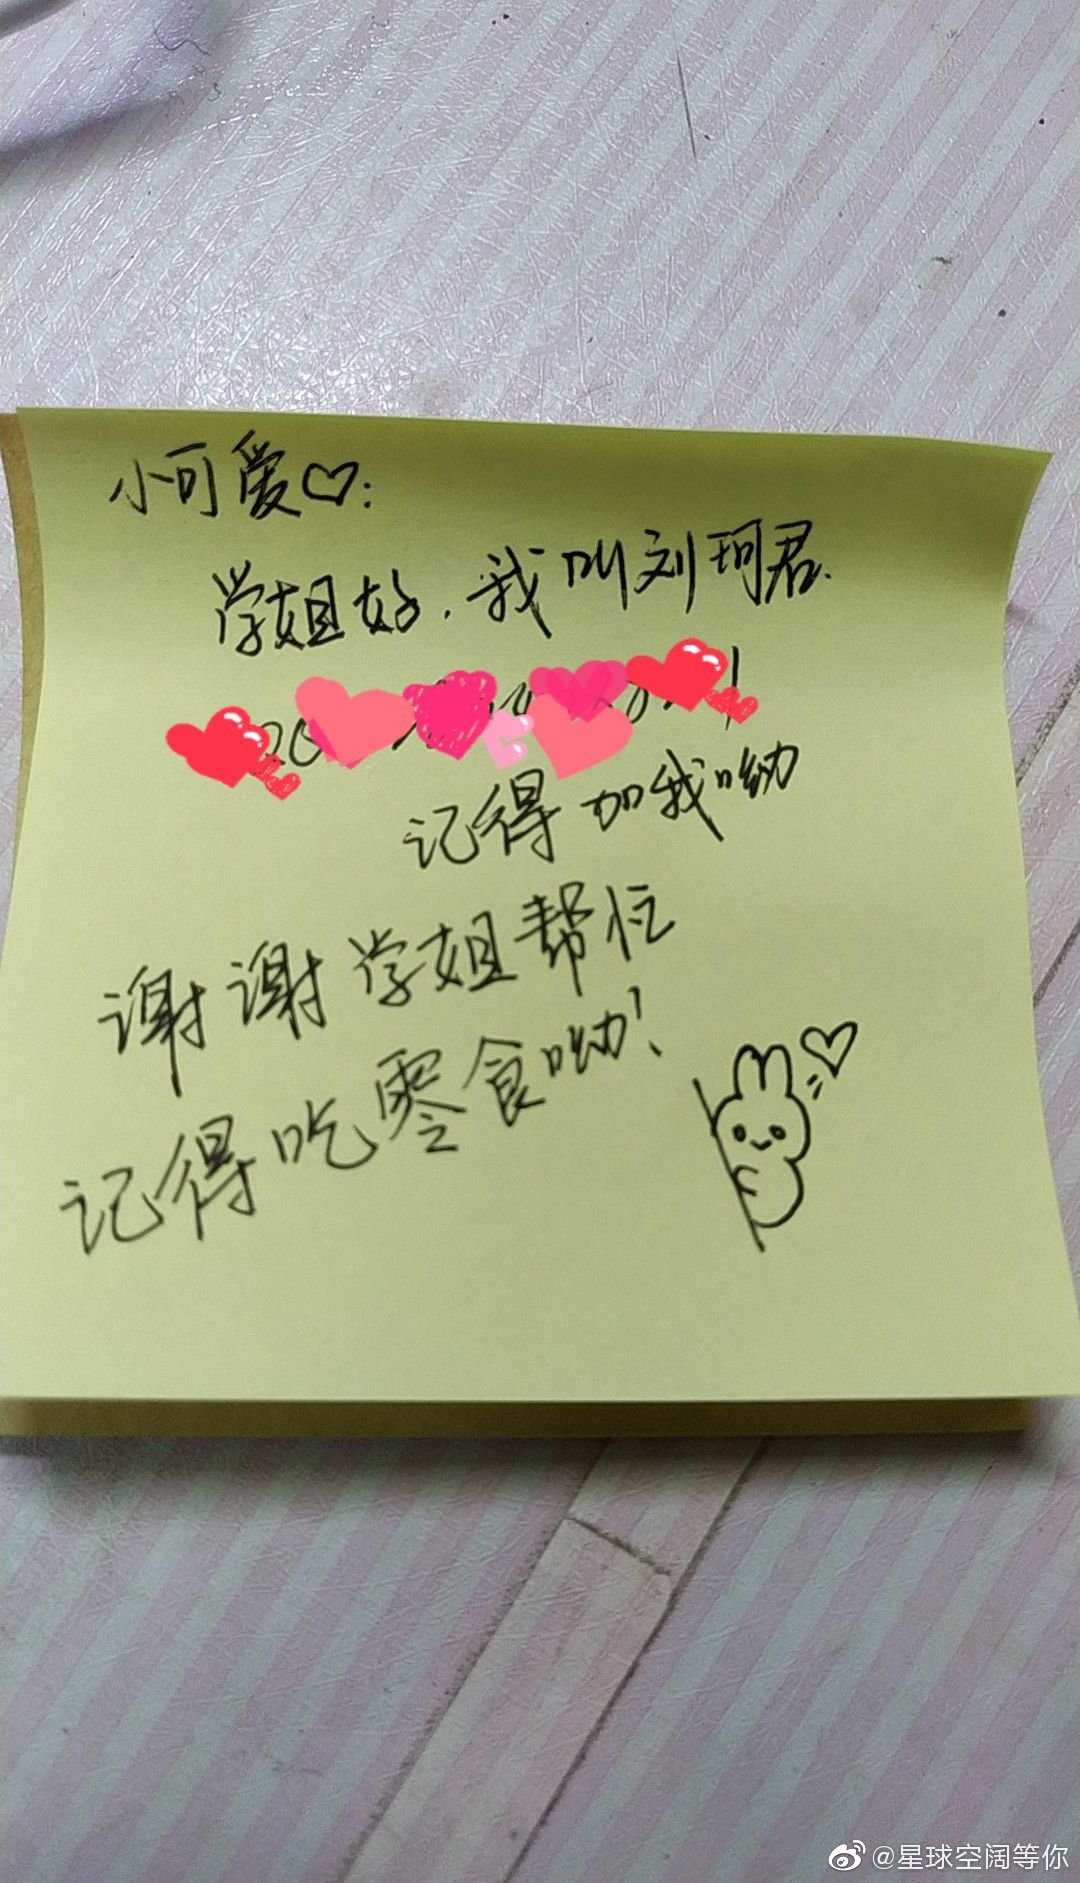 小可爱♡:
学姐好，我叫刘珂君.
记得加我呦
谢谢学姐帮忙
记得吃零食呦!
@星球空阔等你